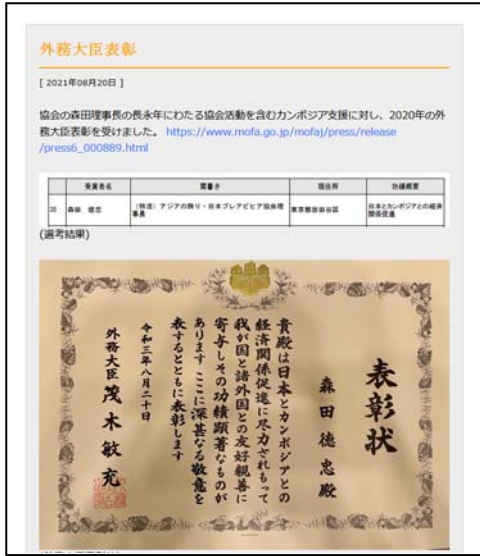 外務大臣表彰
[ 2021年08月20日 ]
協会の森田理事長の長永年にわたる協会活動を含むカンボジア支援に対し、2020年の外
務大臣表彰を受けました。 https://www.mofa.go.jp/mofaj/press/release
/press6_000889.html
受賞者名 肩書き 現住所 功績概要
25 森田 徳忠 (特活)アジアの誇り・日本プレアビヒア協会理 東京都世田谷区 日本とカンボジアとの経済
事長 関係促進
(選考結果)
表彰状
森田徳忠殿
貴殿は日本とカンボジアとの
経済関係促進に尽力されもって
我が国と諸外国との友好親善に
寄与しその功績顕著なものが
あります ここに深甚なる敬意を
表するとともに表彰します
令和三年八月二十日
外務大臣 茂木敏充